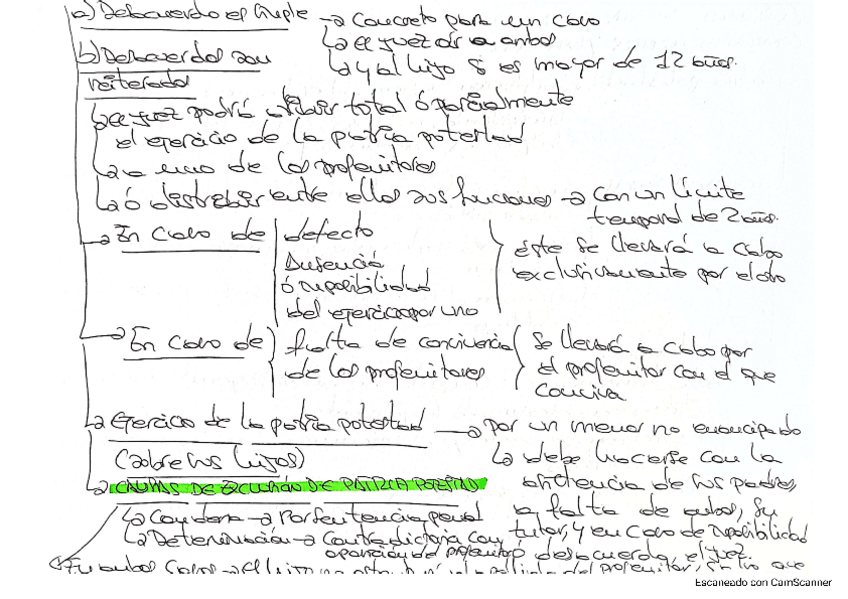 a) Desacuerdo es simple → Concreto para un caso
↳ el juez oír a ambos
↳ y al hijo si es mayor de 12 años.
b) Desacuerdos son
reiterados
↳ el juez podrá atribuir total ó parcialmente
el ejercicio de la patria potestad
↳ a uno de los progenitores
↳ ó distribuir entre ellos sus funciones → con un límite
temporal de 2 años.
→ En caso de
defecto
Ausencia
ó imposibilidad
del ejercicio por uno
éste se llevará a cabo
exclusivamente por el otro
→ En caso de
falta de convivencia
de los progenitores
se llevará a cabo por
el progenitor con el que
conviva
→ Ejercicio de la patria potestad → por un menor no emancipado
(sobre sus hijos)
↳ debe hacerse con la
asistencia de sus padres,
a falta de ambos, su
tutor, y en caso de imposibilidad
ó desacuerdo, el juez.
→ CAUSAS DE EXCLUSIÓN DE PATRIA POTESTAD
↳ Condena → Por sentencia penal
↳ Determinación → Contradictoria con
oposición del progenitor
En ambos casos → El hijo no
del progenitor,
Escaneado con CamScanner